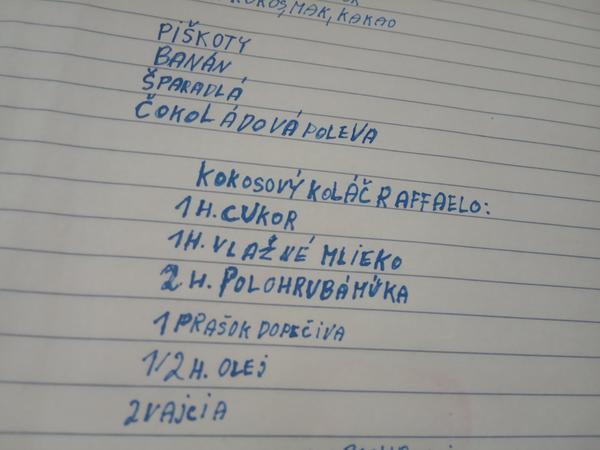 KOKOS, MAK, KAKAO
PIŠKOTY
BANÁN
ŠPARADLÁ
ČOKOLÁDOVÁ POLEVA
KOKOSOVÝ KOLÁČ RAFFAELO:
1 H. CUKOR
1 H. VLAŽNÉ MLIEKO
2 H. POLOHRUBÁ MÚKA
1 PRAŠOK DO PEČIVA
1/2 H. OLEJ
2 VAJCIA